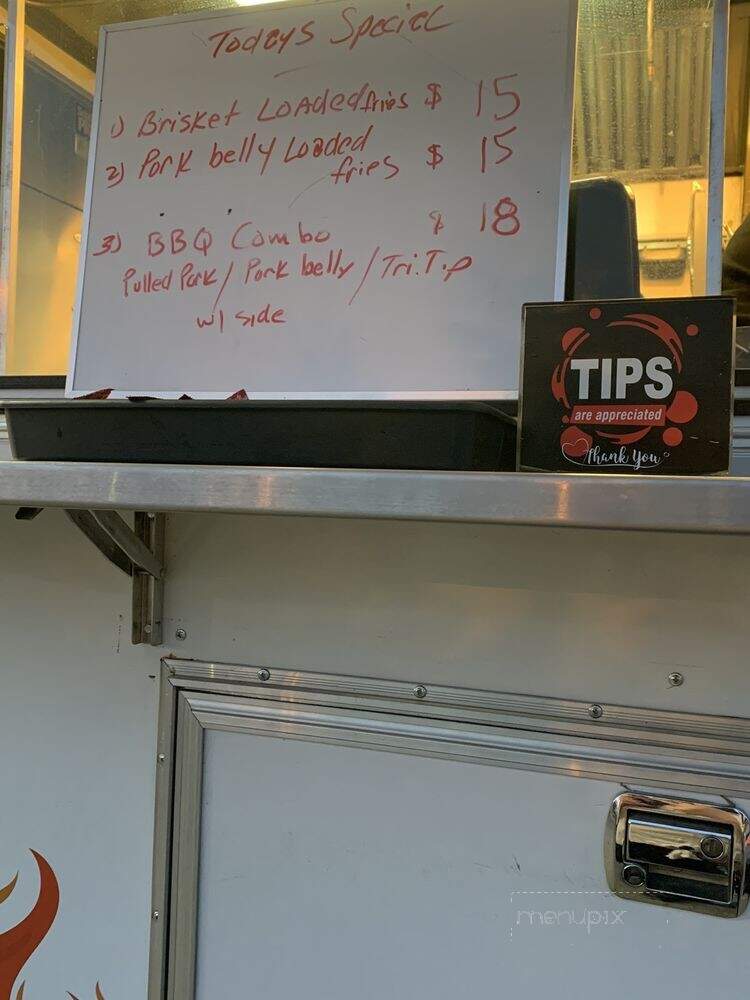 Todays Special
1) Brisket Loaded fries $ 15
2) Pork belly Loaded fries $ 15
3) BBQ Combo $ 18
Pulled Pork / Pork belly / Tri.Tip
w/ side
TIPS
are appreciated
Thank You
menupix